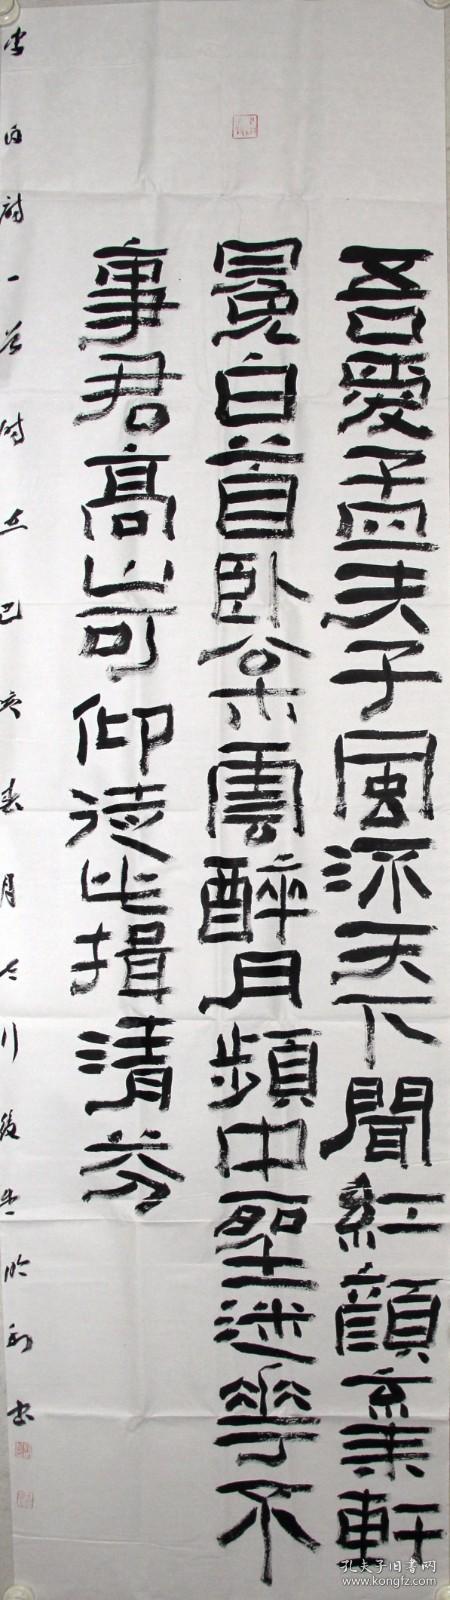 吾愛孟夫子風流天下聞紅顏棄軒
冕白首臥松雲醉月頻中聖迷花不
事君高山可仰徒此揖清芬
李白詩一首時在己亥春月
孔夫子旧书网
www.kongfz.com